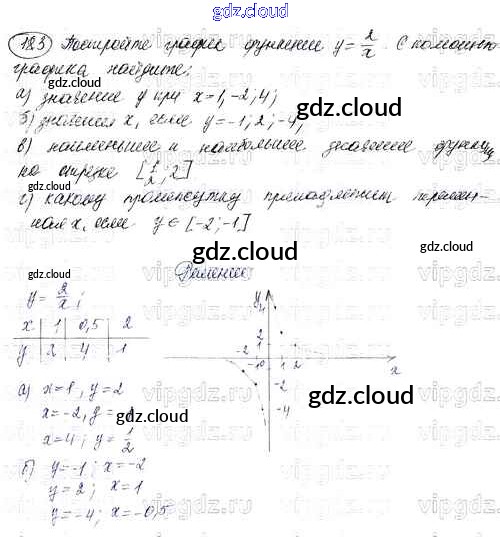 gdz.cloud
183 Постройте график функции y = 2/x. С помощью
gdz.cloud
графика найдите:
а) значение y при x = 1; -2; 4;
gdz.cloud
б) значения x, если y = -1; 2; -4;
в) наименьшее и наибольшее значение функции
на отрезке [1/2; 2]
gdz.cloud
г) какому промежутку принадлежит перемен-
ная x, если y ∈ [-2; -1]
gdz.cloud
gdz.cloud
Решение
gdz.cloud
y = 2/x;
x | 1 | 0,5 | 2
y | 2 | 4 | 1
y
4
2
1
-2
-1 0 1 2
x
-2
-4
gdz.cloud
а) x = 1, y = 2
x = -2, y =
gdz.cloud
x = 4; y = 1/2
б) y = -1; x = -2
y = 2; x = 1
gdz.cloud
y = -4; x = -0,5
vipgdz.ru